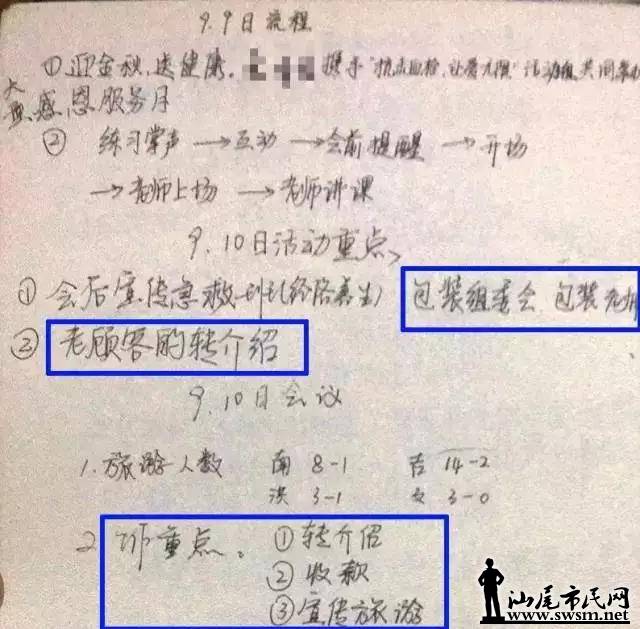 9.9日流程
①迎金秋,送健康. 携手"抗击血栓,让爱无限"活动组共同举办
大型感恩服务月
② 练习掌声→互动→会前提醒→开场
→老师上场→老师讲课
9.10日活动重点
① 会后宣传急救 包装组委会 包装老师
② 老顾客的转介绍
9.10日会议
1.旅游人数 南 8-1 吉 14-2
洪 3-1 3-0
2 重点。①转介绍
②收款
③宣传旅游
汕尾市民网
www.swsm.net